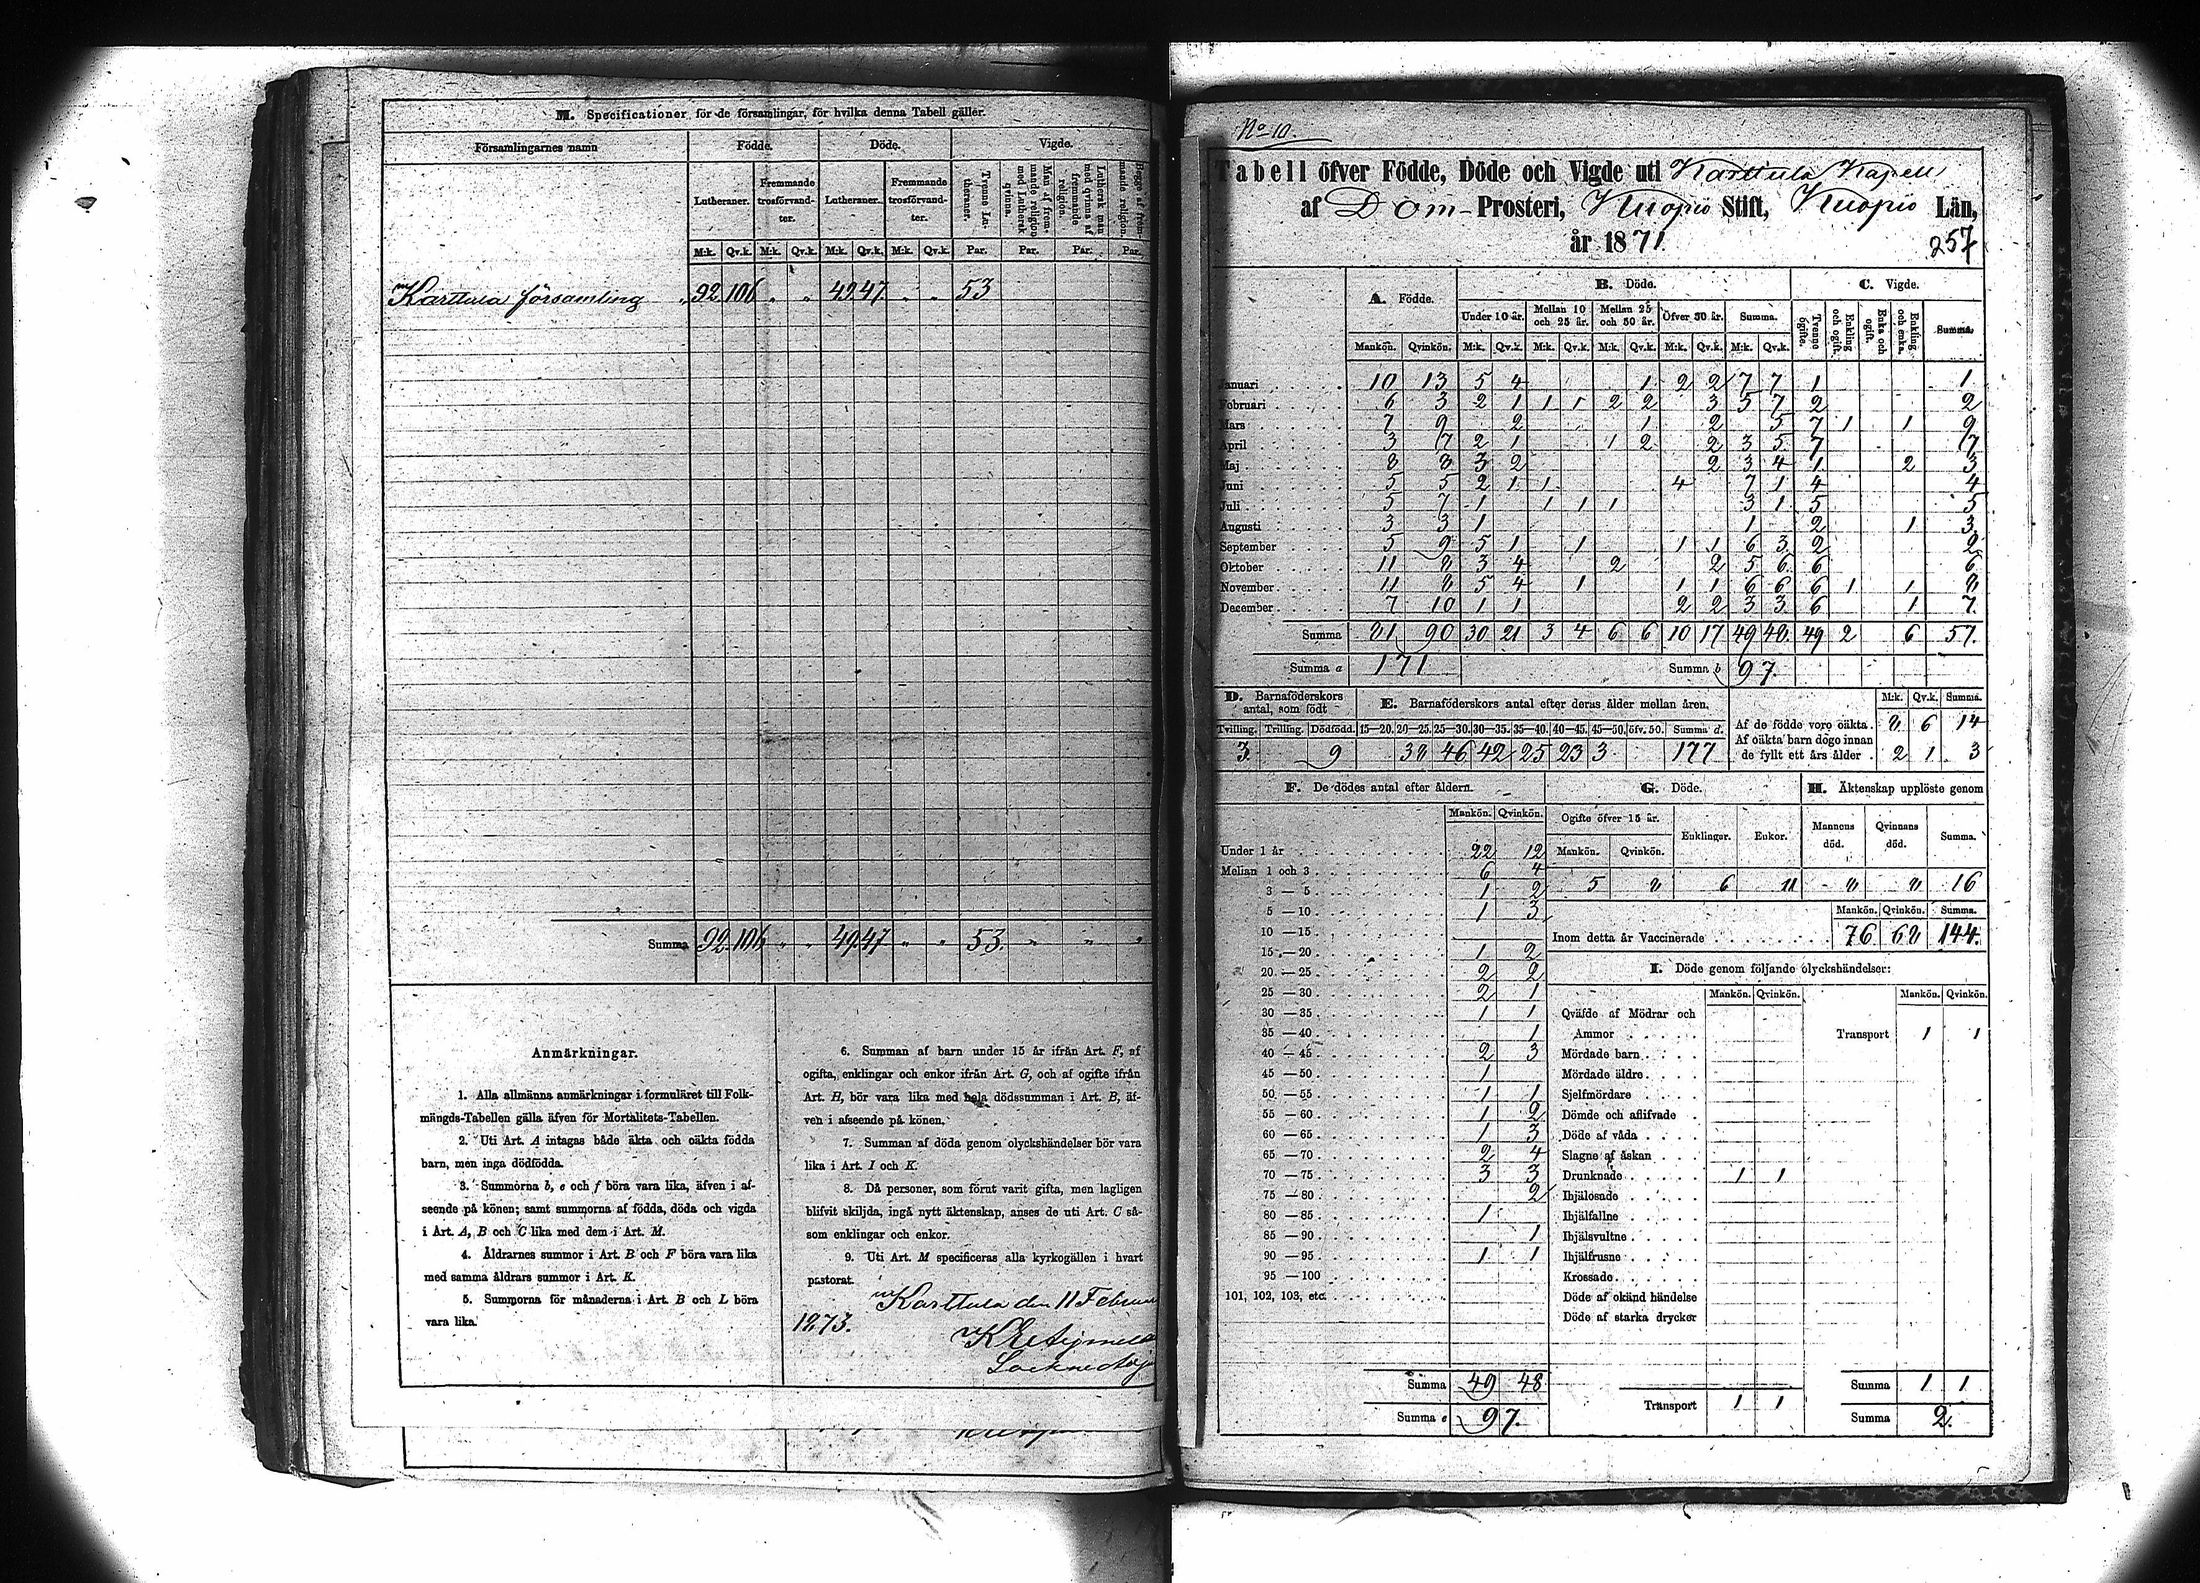 M. Specificationer för de församlingar, för hvilka denna Tabell gäller.
Församlingarnes namn Födde. Döde. Vigde.
Lutheraner. Fremmande trosförvandter. Lutheraner. Fremmande trosförvandter. Tvenne Lutheraner. Man af främmande religion med Luthersk qvinna. Luthersk man med qvinna af fremmande religion.
M:k. Qv.k. M:k. Qv.k. M:k. Qv.k. M:k. Qv.k. Par. Par. Par. Par.
Karttula församling 92 106 " " 49 47 " " 53
Summa 92 106 " " 49 47 " " 53. " " "
Anmärkningar.
1. Alla allmänna anmärkningar i formuläret till Folk-
mängds-Tabellen gälla äfven för Mortalitets-Tabellen.
2. Uti Art. A intagas både äkta och oäkta födda
barn, men inga dödfödda.
3. Summorna b, e och f böra vara lika, äfven i af-
seende på könen; samt summorna af födda, döda och vigda
i Art. A, B och C lika med dem i Art. M.
4. Åldrarnes summor i Art. B och F böra vara lika
med samma åldrars summor i Art. K.
5. Summorna för månaderna i Art. B och L böra
vara lika.
6. Summan af barn under 15 år ifrån Art. F, af
ogifta, enklingar och enkor ifrån Art. G, och af ogifte ifrån
Art. H, bör vara lika med hela dödssumman i Art. B, äf-
ven i afseende på könen.
7. Summan af döda genom olyckshändelser bör vara
lika i Art. I och K.
8. Då personer, som förut varit gifta, men lagligen
blifvit skiljda, ingå nytt äktenskap, anses de uti Art. C så-
som enklingar och enkor.
9. Uti Art. M specificeras alla kyrkogällen i hvart
pastorat.
Karttula den 11 Februa
1873.
No 10.
Tabell öfver Födde, Döde och Vigde uti Karttula Kapell
af Dom-Prosteri, Kuopio Stift, Kuopio Län,
år 1871.
257
A. Födde. B. Döde. C. Vigde.
Under 10 år. Mellan 10 och 25 år. Mellan 25 och 50 år. Öfver 50 år. Summa. Tvenne ogifte. Enkling och ogift. Enka och ogift. Enkling och enka. Summa.
Mankön. Qvinkön. M:k. Qv.k. M:k. Qv.k. M:k. Qv.k. M:k. Qv.k. M:k. Qv.k.
Januari 10 13 5 4 1 2 2 7 7 1 1
Februari 6 3 2 1 1 1 2 2 3 5 7 2 2
Mars 7 9 2 1 2 5 7 1 1 9
April 3 7 2 1 1 2 2 3 5 7 7
Maj 8 8 3 2 2 3 4 1 2 3
Juni 5 5 2 1 1 4 7 1 4 4
Juli 5 7 1 1 1 1 3 1 5 5
Augusti 3 3 1 1 2 1 3
September 5 9 5 1 1 1 1 6 3 2 2
Oktober 11 8 3 4 2 2 5 6 6 6
November 11 8 5 4 1 1 1 6 6 6 1 1 8
December 7 10 1 1 2 2 3 3 6 1 7.
Summa 81 90 30 21 3 4 6 6 10 17 49 48 49 2 6 57.
Summa a 171 Summa b 97.
D. Barnaföderskors antal, som födt
Tvilling. Trilling. Dödfödd.
3 9
E. Barnaföderskors antal efter deras ålder mellan åren.
15—20. 20—25. 25—30. 30—35. 35—40. 40—45. 45—50. öfv. 50. Summa d.
38 46 42 25 23 3 177
M:k. Qv.k. Summa.
Af de födde voro oäkta. 8 6 14
Af oäkta barn dogo innan
de fyllt ett års ålder. 2 1 3
F. De dödes antal efter åldern.
Mankön. Qvinkön.
Under 1 år 22 12
Mellan 1 och 3 6 4
3 — 5 1 2
5 — 10 1 3
10 — 15
15 — 20 1 2
20 — 25 2 2
25 — 30 2 1
30 — 35 1 1
35 — 40 1
40 — 45 2 3
45 — 50 1
50 — 55 1 1
55 — 60 1 2
60 — 65 1 3
65 — 70 2 4
70 — 75 3 3
75 — 80 2
80 — 85 1
85 — 90 1
90 — 95 1 1
95 — 100
101, 102, 103, etc.
Summa 49 48
Summa e 97.
G. Döde.
Ogifte öfver 15 år. Enklingar. Enkor.
Mankön. Qvinkön.
5 8 6 11
H. Äktenskap upplöste genom
Mannens död. Qvinnans död. Summa.
8 8 16
Mankön. Qvinkön. Summa.
Inom detta år Vaccinerade 76 68 144.
I. Döde genom följande olyckshändelser:
Mankön. Qvinkön. Mankön. Qvinkön.
Qväfde af Mödrar och
Ammor Transport 1 1
Mördade barn
Mördade äldre
Sjelfmördare
Dömde och aflifvade
Döde af våda
Slagne af åskan
Drunknade 1 1
Ihjälosade
Ihjälfallne
Ihjälsvultne
Ihjälfrusne
Krossade
Döde af okänd händelse
Döde af starka drycker
Transport 1 1
Summa 1 1
Summa 2.